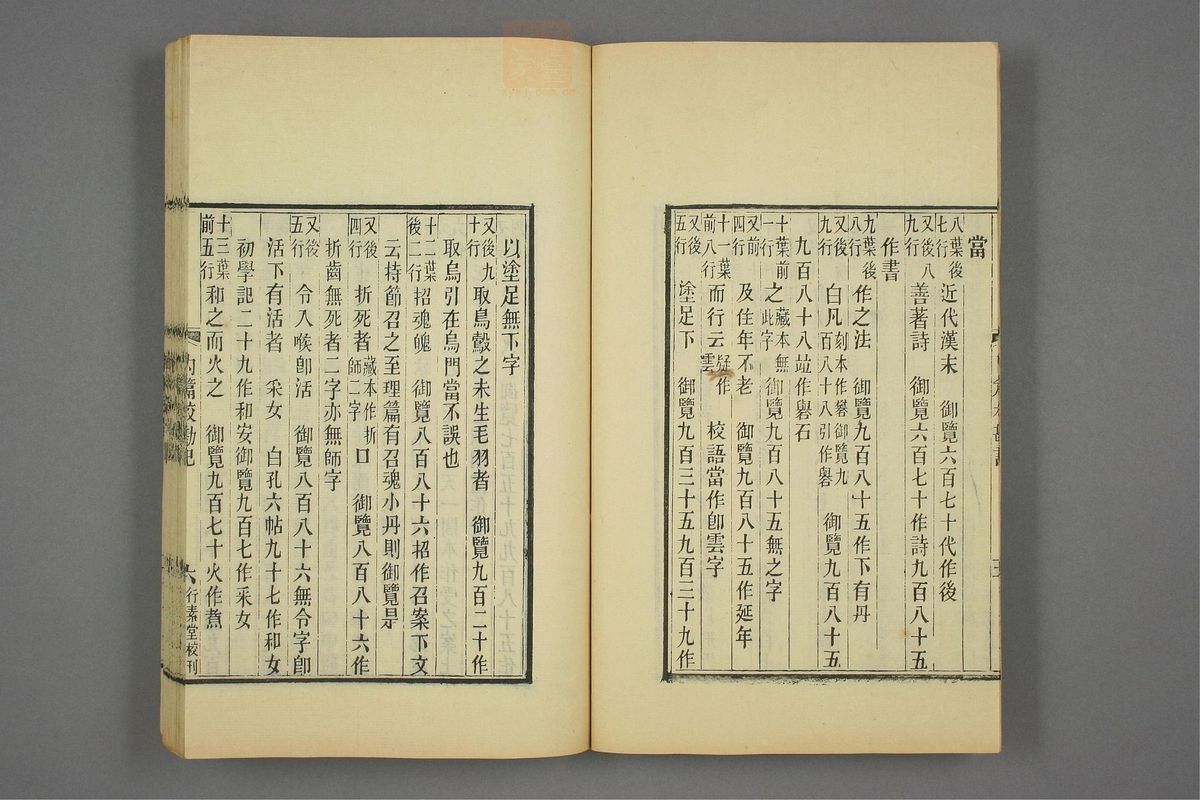 當
八葉後七行近代漢末　御覽六百七十代作後
又後八九行善著詩　御覽六百七十作詩九百八十五
作書
九葉後八行作之法　御覽九百八十五作下有丹
又後九行白凡刻本作礬御覽九百八十八引作礜　御覽九百八十五
九百八十八竝作礜石
十葉前一行之藏本無此字御覽九百八十五無之字
又前四行及佳年不老　御覽九百八十五作延年
十一葉前八行而行云疑作雲　校語當作卽雲字
又後五行塗足下　御覽九百三十五九百三十九作
以塗足無下字
又後九十行取烏鷇之未生毛羽者　御覽九百二十作
取烏引在烏門當不誤也
十二葉後二行招魂魄　御覽八百八十六招作召案下文
云持節召之至理篇有召魂小丹則御覽是
又後四行折死者藏本作折師二字口　御覽八百八十六作
折齒無死者二字亦無師字
又後五行令入喉卽活　御覽八百八十六無令字卽
活下有活者　采女　白孔六帖九十七作和女
初學記二十九作和安御覽九百七作采女
十三葉前五行和之而火之　御覽九百七十火作煮
內篇校勘記　六　行素堂校刊